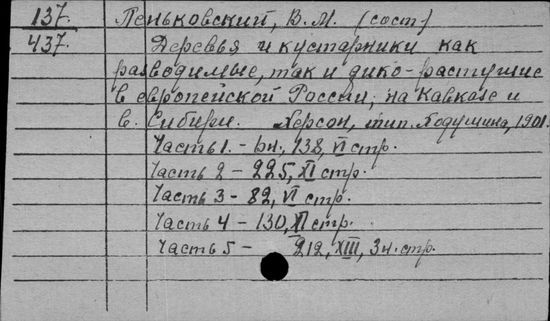 137. Пеньковский, В.М. (сост)
437. Деревья и кустарники как
разводимые, так и дико-растущие
в европейской России, на Кавказе и
в Сибири. Херсон, тип. Ходушина, 1901.
Часть 1. - 6н., 138, VI стр.
Часть 2 - 225, XI стр.
Часть 3 - 82, VI стр.
Часть 4 - 130, XI стр.
Часть 5 - 212, XIII, 3н. стр.